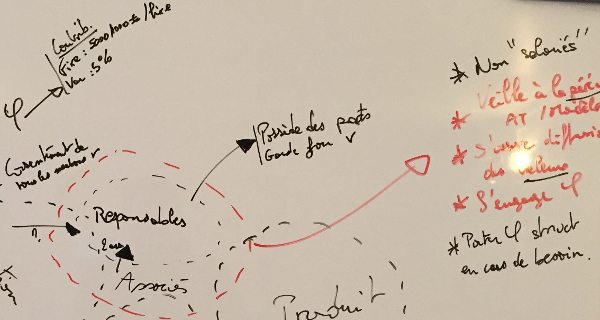 Contrib.
Fixe : 5000/10000 € / fixe
Var : 5%
φ
Consentement de
tous les
Possède des parts
Garde fou
Responsables
2 ans
Associés
Produit
* Non "salariés"
* Veille à la
AT / Modèle
* S'assure diffusion
des valeurs
* S'engage φ
* Porter φ struct
en cas de besoin.